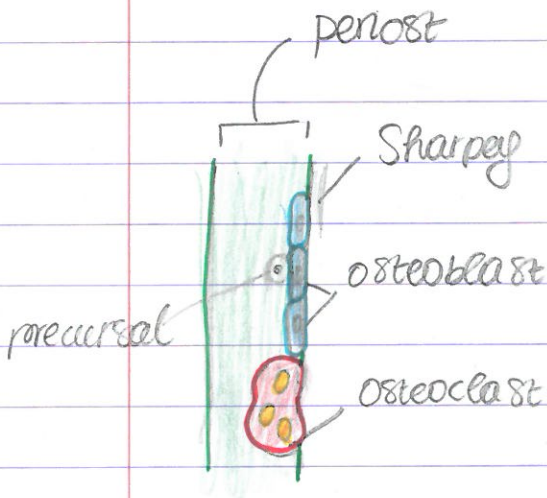 periost
Sharpey
osteoblast
precursal
osteoclast